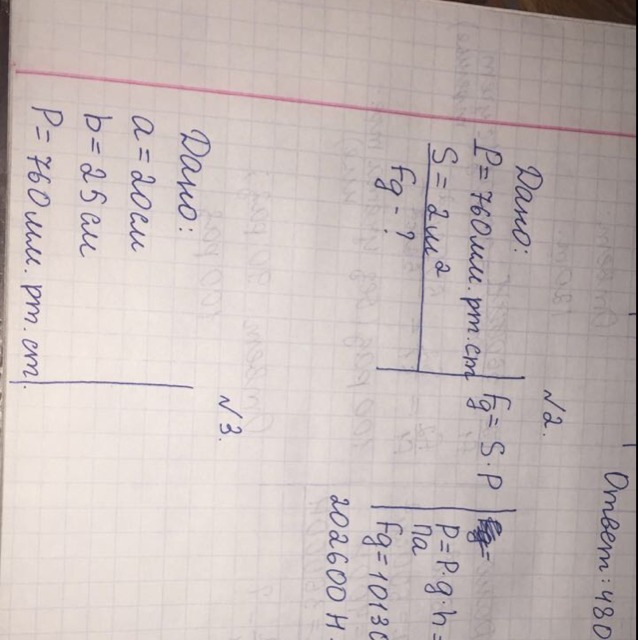 Ответ: 480
№2.
Дано:
P = 760 мм. рт. ст
S = 2 м²
Fg - ?
Fg = S · P
P = P · g · h =
Па
Fg = 10130
202600 Н.
№3.
Дано:
a = 20 см
b = 25 см
P = 760 мм. рт. ст.